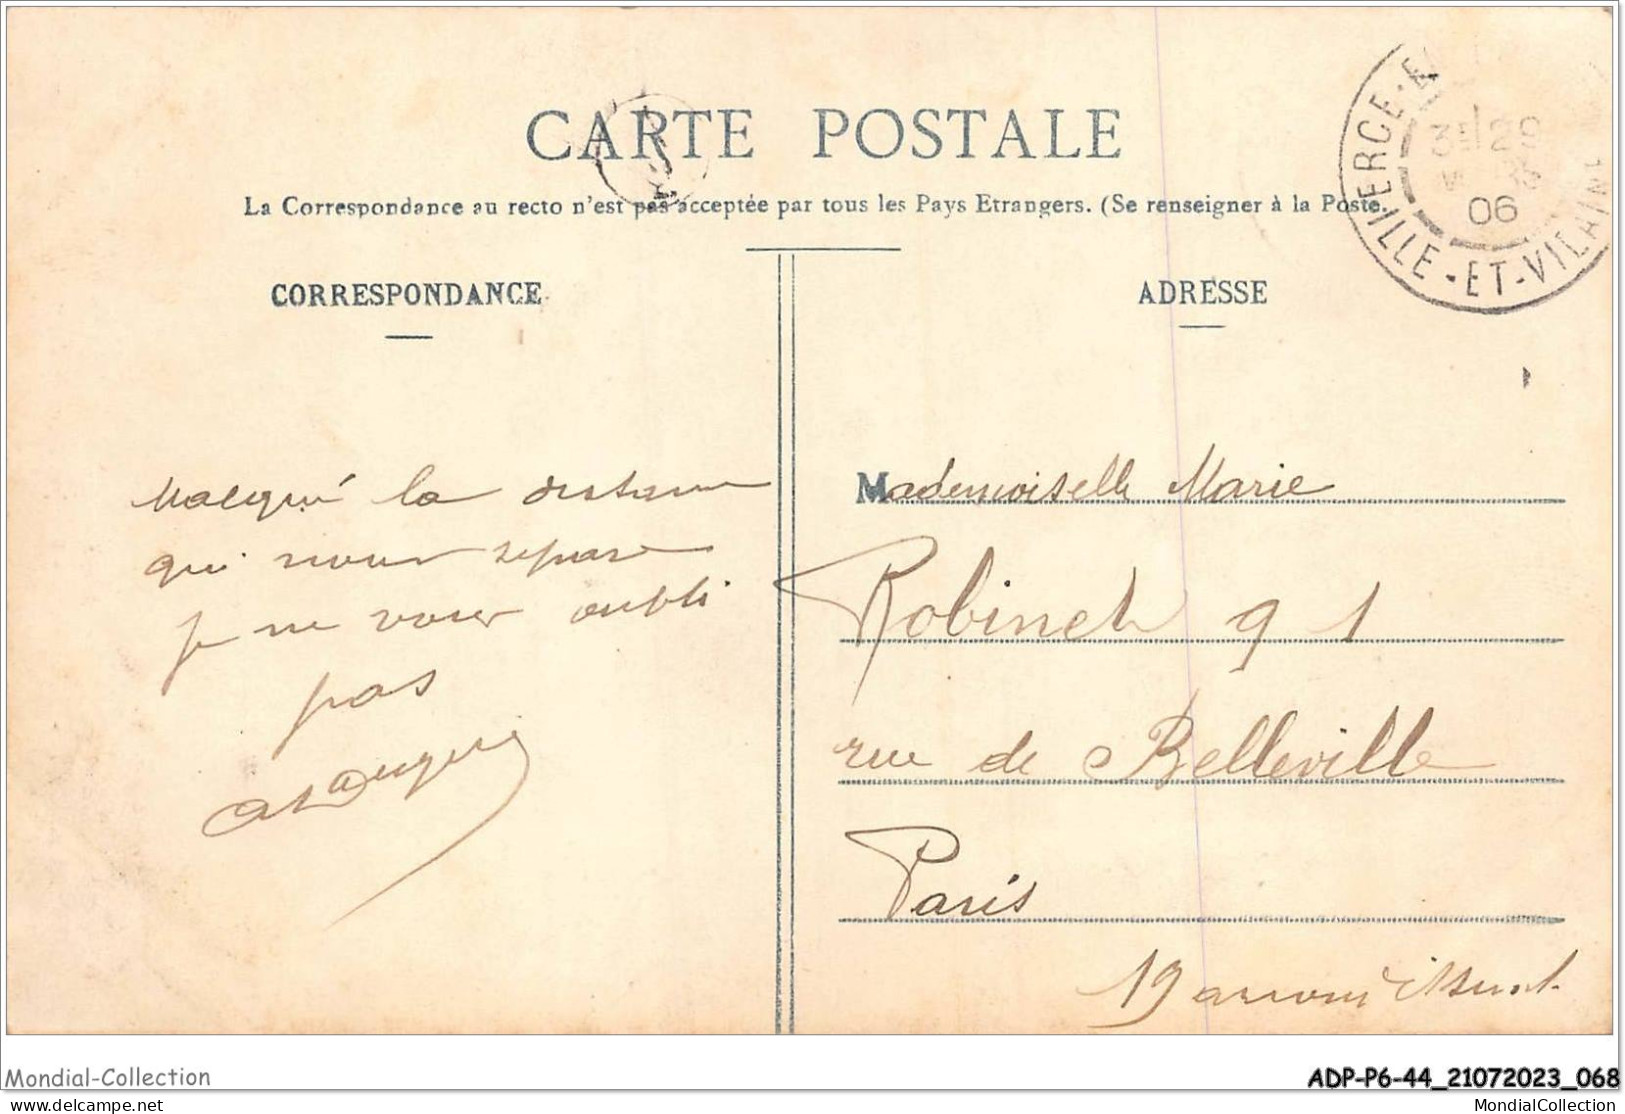 CARTE POSTALE
La Correspondance au recto n'est pas acceptée par tous les Pays Etrangers. (Se renseigner à la Poste.
ERCE-E
06
ILLE-ET-VILAINE
CORRESPONDANCE
ADRESSE
Malgré la distance
qui nous sépare
je ne vous oubli
pas
Mademoiselle Marie
Robinet 91
rue de Belleville
Paris
19 arrondissement
Mondial-Collection
ADP-P6-44_21072023_068
www.delcampe.net
MondialCollection